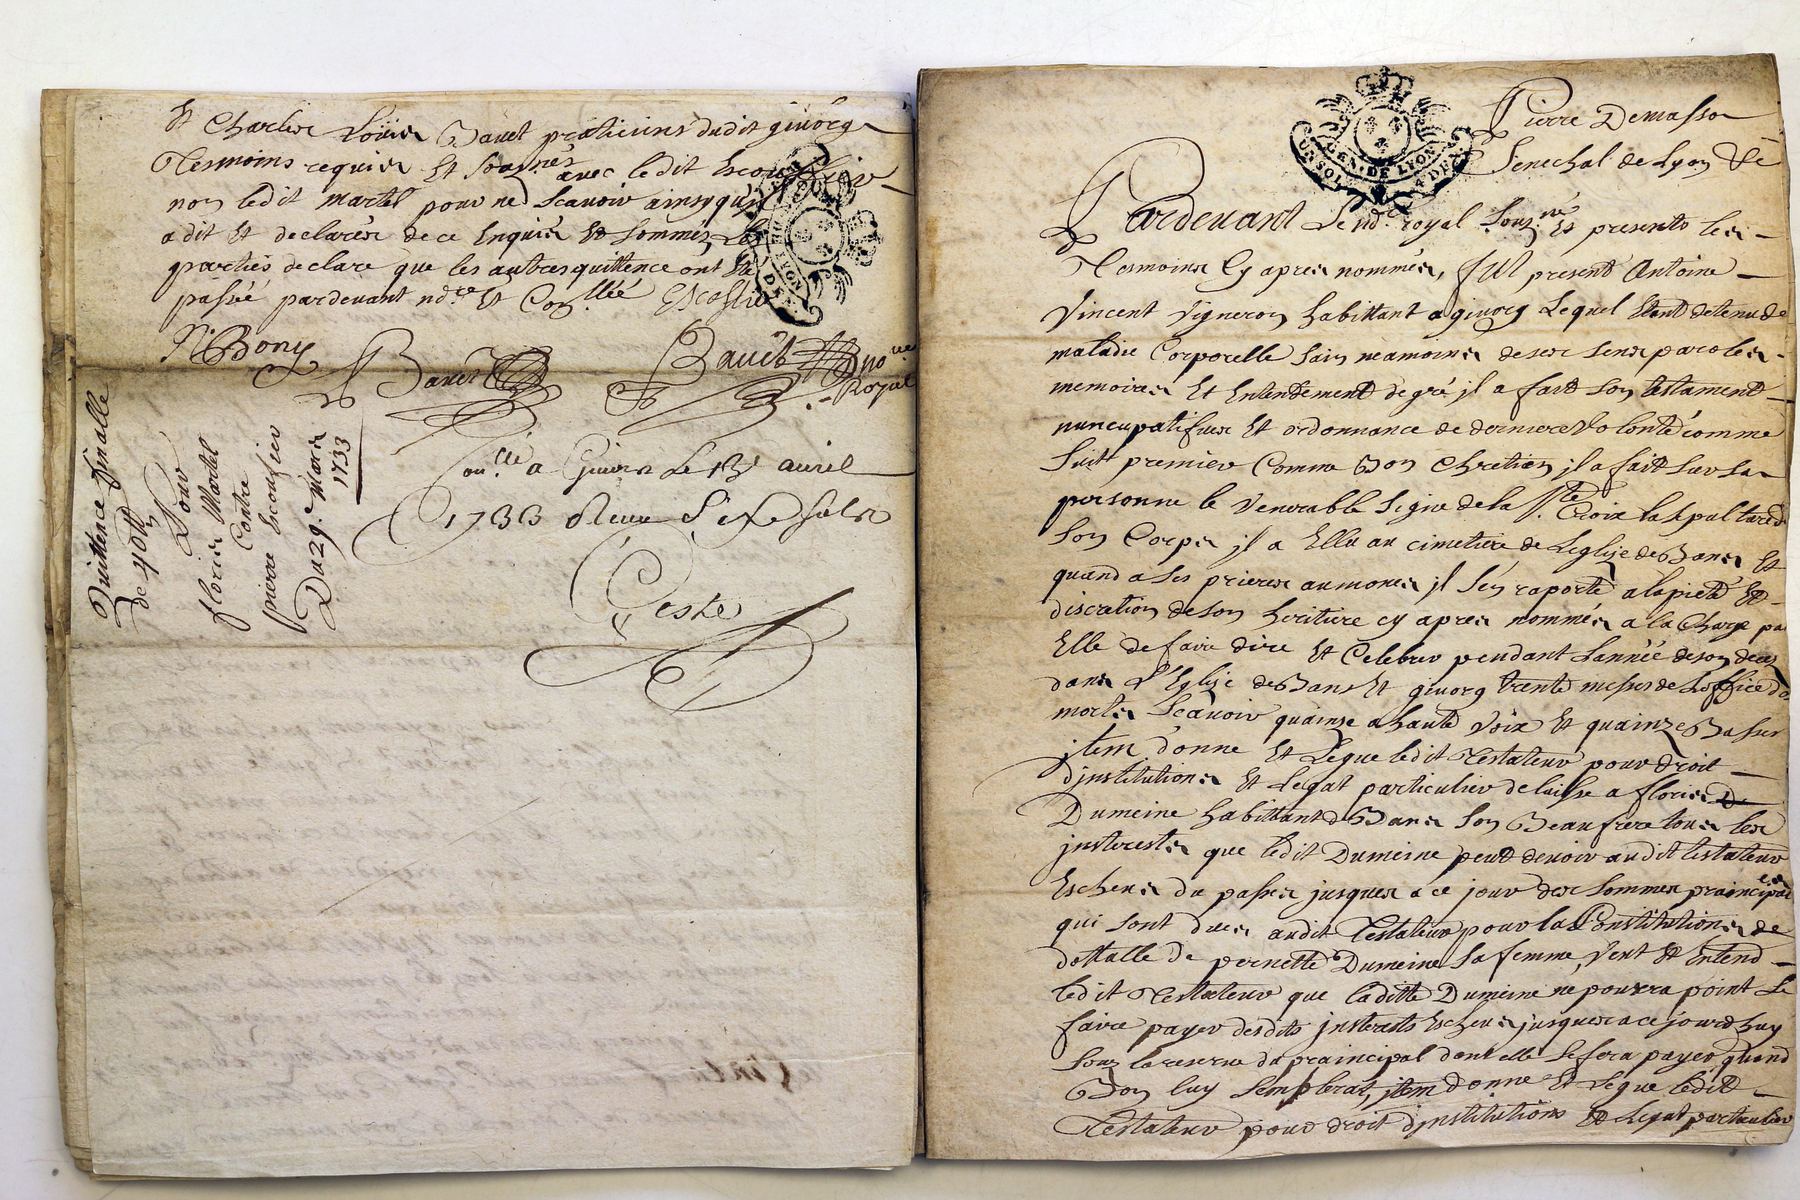 Et Charles Loüis Bauet praticiens dudit giuorg
Tesmoins requis Et Soussnés avec ledit Escoffier
non ledit martel pour ne Scauoir ainsy qu'il
a dit Et declarés de ce Enquis Et Sommés Les
parties declare que les autres quittence ont Eté
passée pardeuant ndre Et Conllée Escoffier
N. Bony
Bauet
Bauet no.re
Royal
Conllé a Giuors Le 13e auril
1733
Geste
Quittence finalle
de 40tt
Pour
floris Martel
Contre
pierre Escoffier
Du 29e Mars
1733
GEN. DE LYON
Pierre Demasso
Senechal de Lyon &c
GEN. DE LYON
UN SOL 4 DEN.
Pardeuant Le nd.re royal Souz.né Et presents les
Tesmoins Cy apres nommés, fut present Antoine
Vincent Vigneron habittant a giuorg Lequel Etant detenu de
maladie Corporelle Sain neamoins de ses Sens paroles
memoires Et Entendement de gré il a fait Son testament
nuncupatif Et ordonnance de derniere Volonté comme
Suit premier Comme Bon Chretien il a fait Sur Sa
personne le Venerable Signe de la Ste Croix la Sepulture de
Son Corps il a Ellu au cimetiere de Leglize de Bans Et
quand a Ses prieres aumones il S'en raporte a la pieté Et
discration de Son heritiere cy apres nommés a la Charge pa
Elle de faire dire Et Celebrer pendant Lannéé de son deces
dans L'Eglize de Bans Et giuorg trente messes de Loffice de
morts Scauoir quainze a haute Voix Et quainze Basses
jtem donne Et Legue ledit Testateur pour droit
djnstitutions Et Legat particulier delaisse a floris D
Dumeine habittant d Bans Son Beaufrere tous les
jnterests que ledit Dumeine peut deuoir audit testateur
Escheus du passés jusques a ce jour des Sommes prainciples
qui Sont dues audit Testateur pour la Constitutions de
dottalle de pernette Dumeine Sa femme, Veut Et Entend
ledit Testateur que laditte Dumeine ne pourra point Se
faire payer desdits jnterests Escheus jusques a ce jourdhuy
Sous la reserue du praincipal dont elle Se fera payer quand
Bon luy Semblerat, jtem donne Et Legue ledit
Testateur pour droit djnstitutions Et Legat particulier